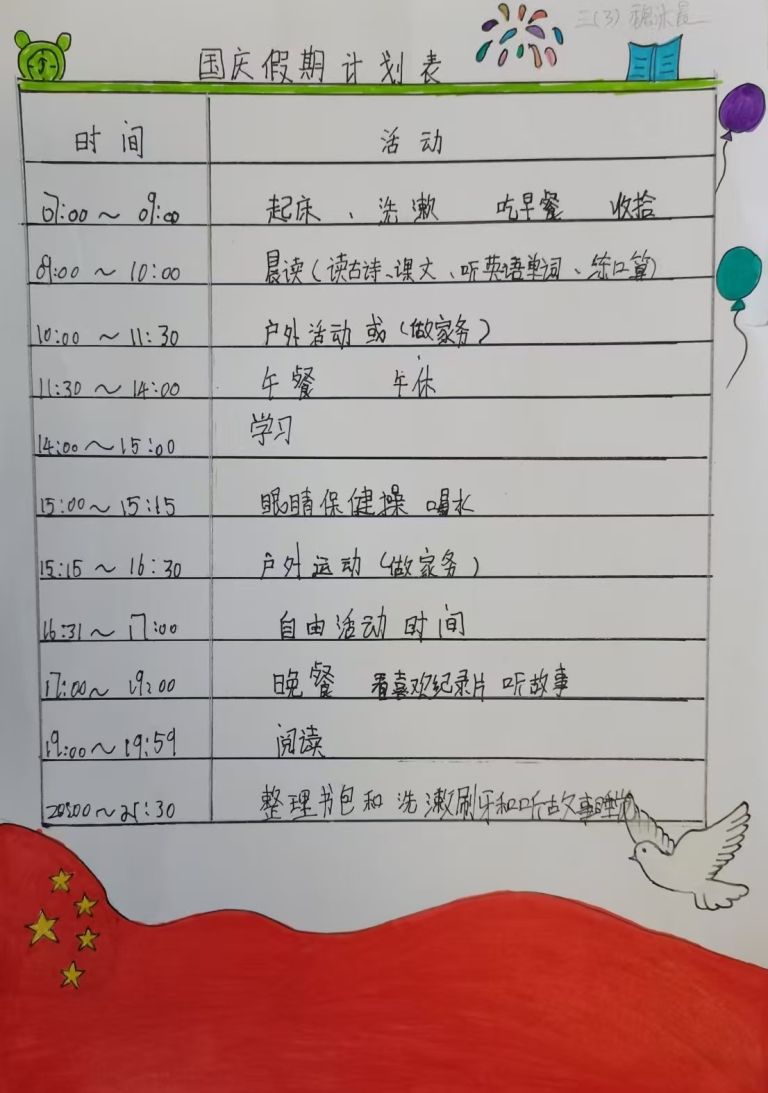 三(3)
国庆假期计划表
时间 活动
07:00～09:00 起床、洗漱 吃早餐 收拾
09:00～10:00 晨读(读古诗、课文、听英语单词、练口算)
10:00～11:30 户外活动或(做家务)
11:30～14:00 午餐 午休
14:00～15:00 学习
15:00～15:15 眼睛保健操 喝水
15:15～16:30 户外运动(做家务)
16:31～17:00 自由活动时间
17:00～19:00 晚餐 看喜欢纪录片 听故事
19:00～19:59 阅读
20:00～21:30 整理书包和洗漱刷牙和听故事睡觉